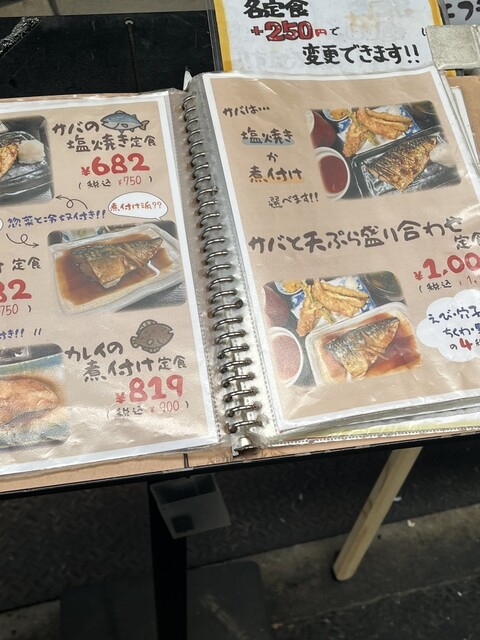 各定食
+250円で
変更できます!!
サバの
塩焼き定食
¥682
(税込 ¥750)
煮付け派??
惣菜と冷奴付き!!
定食
82
750)
付き!!
カレイの
煮付け定食
¥819
(税込 ¥900)
サバは…
塩焼き
か
煮付け
選べます!!
サバと天ぷら盛り合わせ
定食
¥1,00
(税込 1,
えび・穴子
ちくわ・
の4